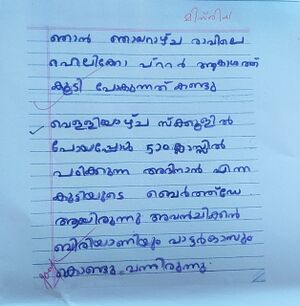 മിസ്രിയ
ഞാൻ ഞായറാഴ്ച രാവിലെ
ഹെലികോ പ്റ്റർ ആകാശത്ത്
കൂടി പോകുന്നത് കണ്ടു
വെള്ളിയാഴ്ച സ്ക്കൂളിൽ
പോയപ്പോൾ ട്ടാ ക്ലാസ്സിൽ
പഠിക്കുന്ന അദിനാൻ എന്ന
കുട്ടിയുടെ ബെർത്ത്ഡേ
ആയിരുന്നു അവൻ ചിക്കൻ
ബിരിയാണിയും പാട്ടർകാസും
കൊണ്ടു വന്നിരുന്നു.